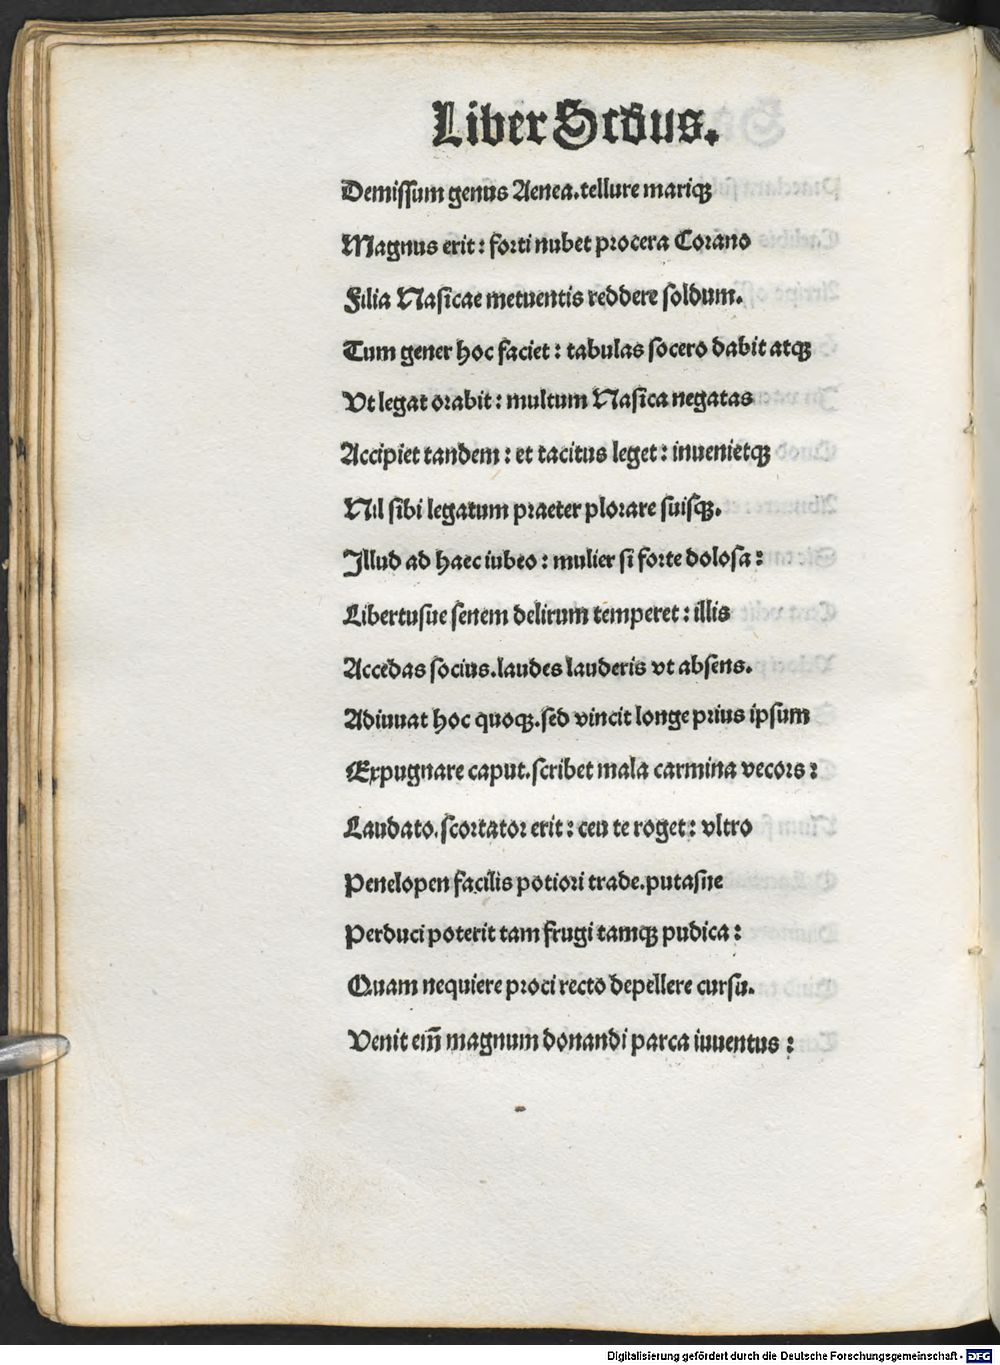 Liber Scd̄us.
Demiſſum genus Aenea. tellure mariqꝫ
Magnus erit: forti nubet procera Corano
Filia Naſicae metuentis reddere ſoldum.
Tum gener hoc faciet: tabulas ſocero dabit atqꝫ
Vt legat orabit: multum Naſica negatas
Accipiet tandem: et tacitus leget: inuenietqꝫ
Nil ſibi legatum praeter plorare ſuiſqꝫ.
Illud ad haec iubeo: mulier ſi forte doloſa:
Libertuſue ſenem delirum temperet: illis
Accedas ſocius. laudes lauderis vt abſens.
Adiuuat hoc quoqꝫ. ſed vincit longe prius ipſum
Expugnare caput. ſcribet mala carmina vecors:
Laudato. ſcortator erit: ceu te roget: vltro
Penelopen facilis potiori trade. putaſne
Perduci poterit tam frugi tamqꝫ pudica:
Quam nequiere proci recto depellere curſu.
Venit eīm magnum donandi parca iuuentus:
Digitalisierung gefördert durch die Deutsche Forschungsgemeinschaft - DFG